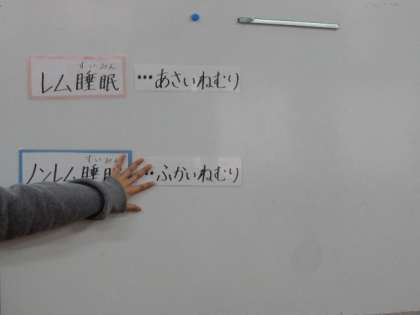 すいみん
レム睡眠 …あさいねむり
すいみん
ノンレム睡眠 …ふかいねむり